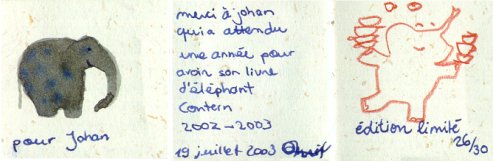 pour Johan
merci à johan
qui a attendu
une année pour
avoir son livre
d'éléphant
Contern
2002-2003
19 juillet 2003
édition limité
26/30